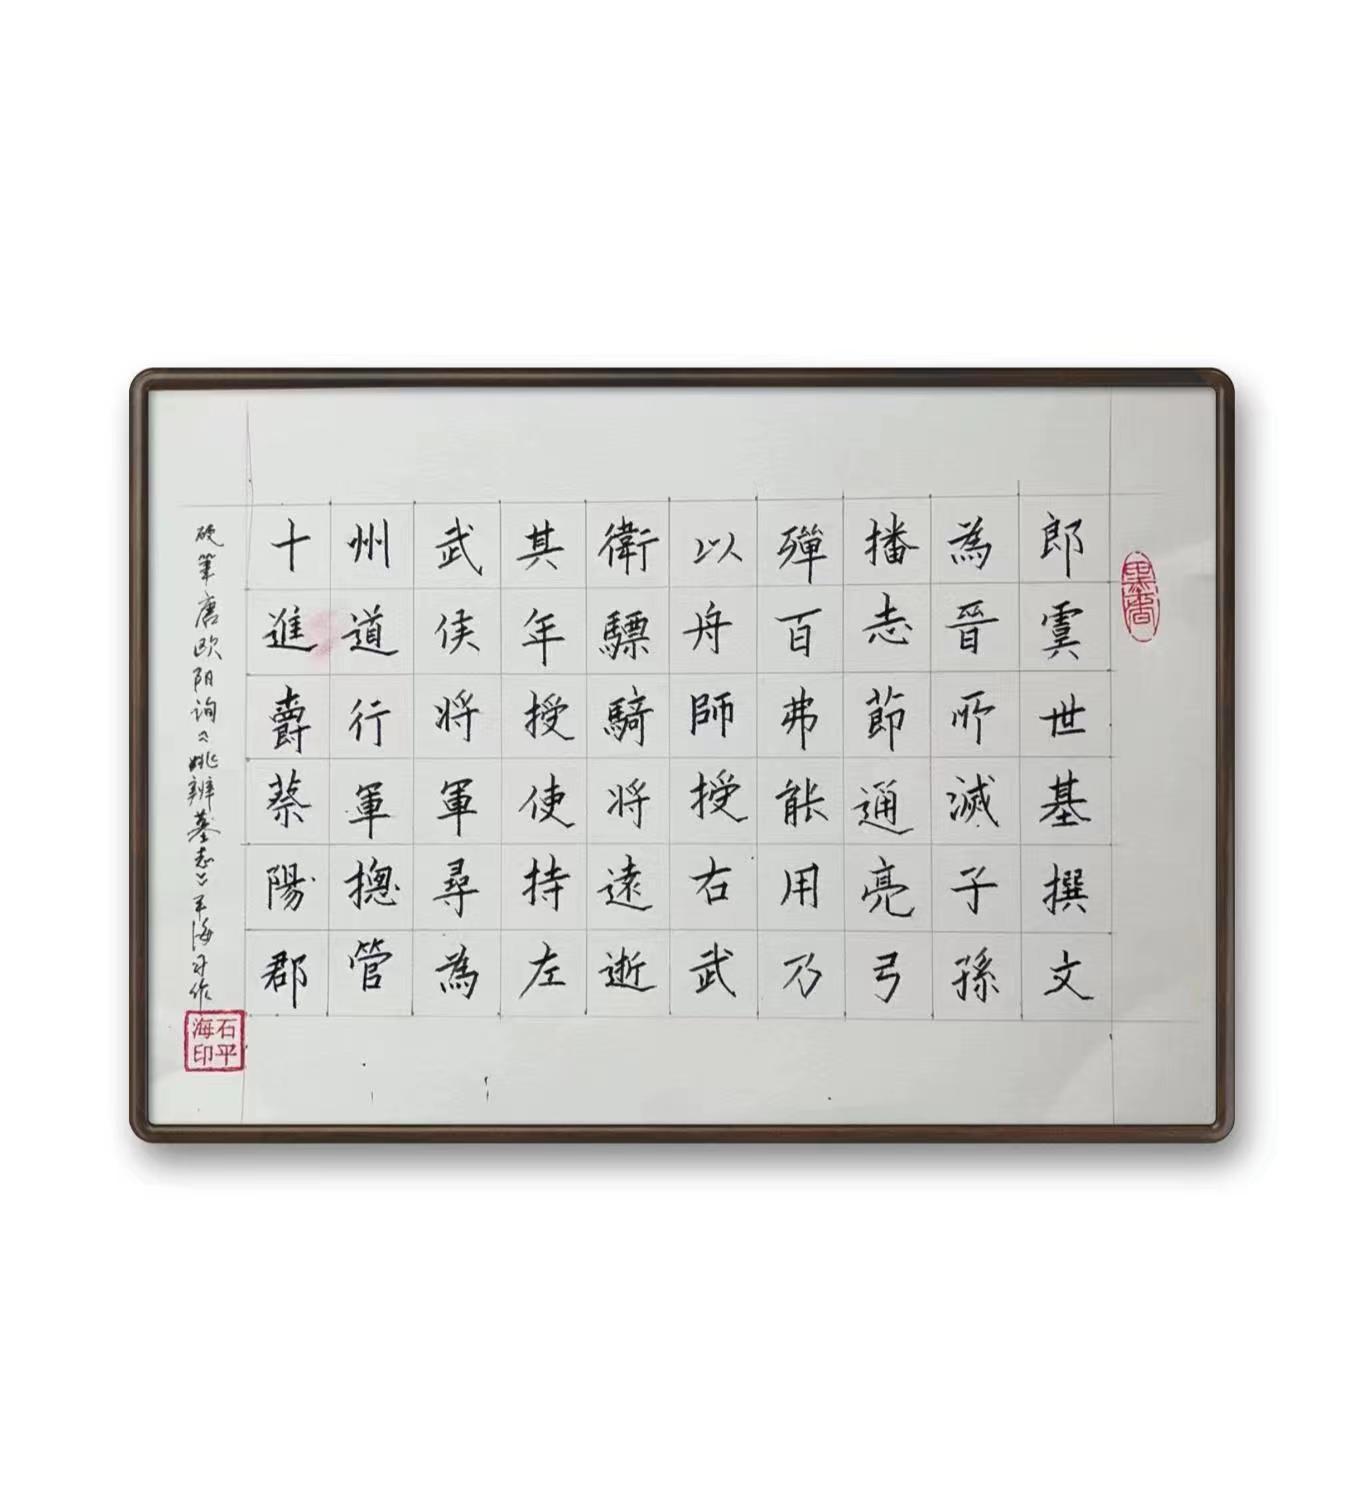 墨香
郎虞世基撰文
為晉所滅子孫
播志節通亮弓
殫百弗能用乃
以舟師授右武
衛驃騎將遠逝
其年授使持左
武侯將軍尋為
州道行軍摠管
十進爵蔡陽郡
硬筆唐欧阳询《姚辨墓志》平海习作
石平海印